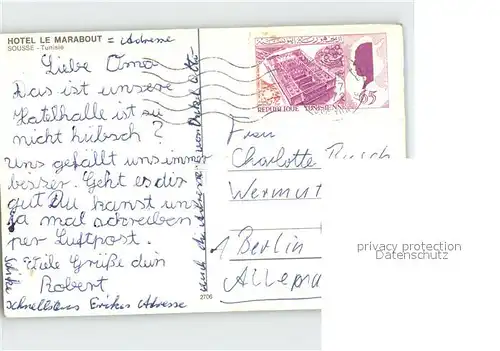 HOTEL LE MARABOUT = Adresse
SOUSSE - Tunisie
Liebe Oma
Das ist unsere
Hotelhalle ist sie
nicht hübsch?
Uns gefällt uns immer
besser. Geht es dir
gut Du kanst uns
ja mal schreiben
per Luftpost.
Viele Grüße dein
Robert
schnellstens Erikas Adresse
und die Adresse von Onkel Otto
2706
REPUBLIQUE TUNISIENNE
65
Frau
Charlotte
Wermut
1 Berlin
Allema
privacy protection
Datenschutz